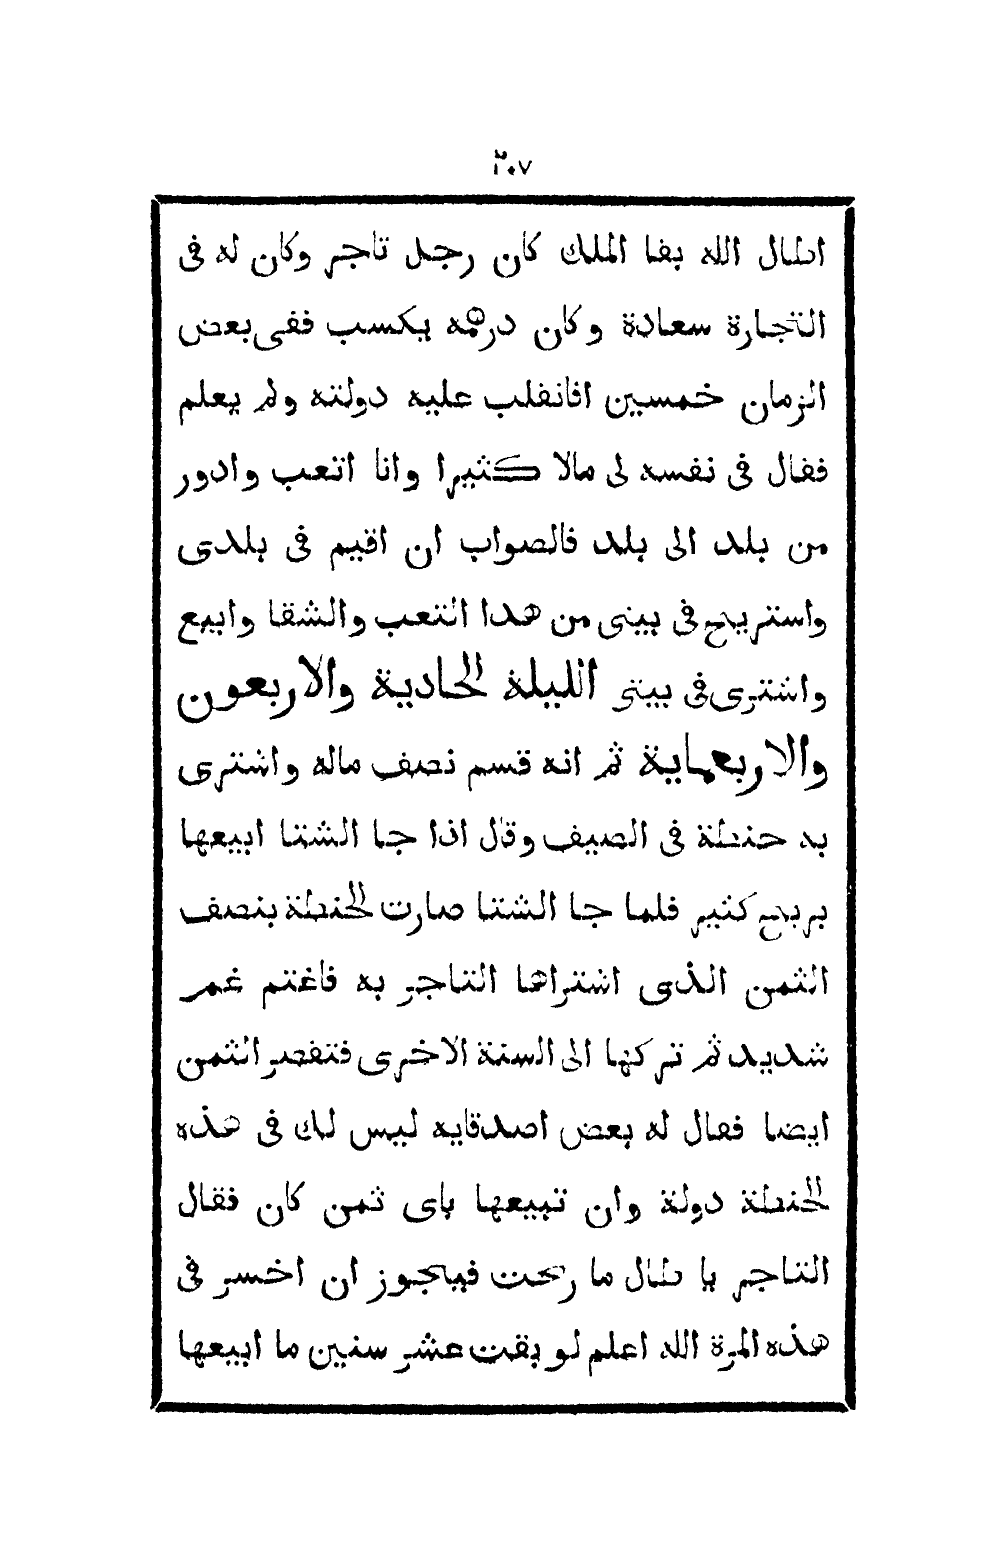 ٢٠٧
اطال الله بقا الملك كان رجل تاجر وكان له فى
التجارة سعادة وكان درهمه يكسب ففى بعض
الزمان خمسين فانقلب عليه دولته ولم يعلم
فقال فى نفسه لى مالا كثيرا وانا اتعب وادور
من بلد الى بلد فالصواب ان اقيم فى بلدى
واستريح فى بيتى من هدا التعب والشقا وابيع
واشترى فى بيتى الليلة الحادية والاربعون
والاربعماية ثم انه قسم نصف ماله واشترى
به حنطة فى الصيف وقال اذا جا الشتا ابيعها
بربح كثير فلما جا الشتا صارت الحنطة بنصف
الثمن الذى اشتراها التاجر به فاغتم غمر
شديد ثم تركها الى السنة الاخرى فتقصر الثمن
ايضا فقال له بعض اصدقايه ليس لك فى هذه
الحنطة دولة وان تبيعها باى ثمن كان فقال
التاجر يا طال ما ربحت فيجوز ان اخسر فى
هذه المرة الله اعلم لو بقت عشر سنين ما ابيعها